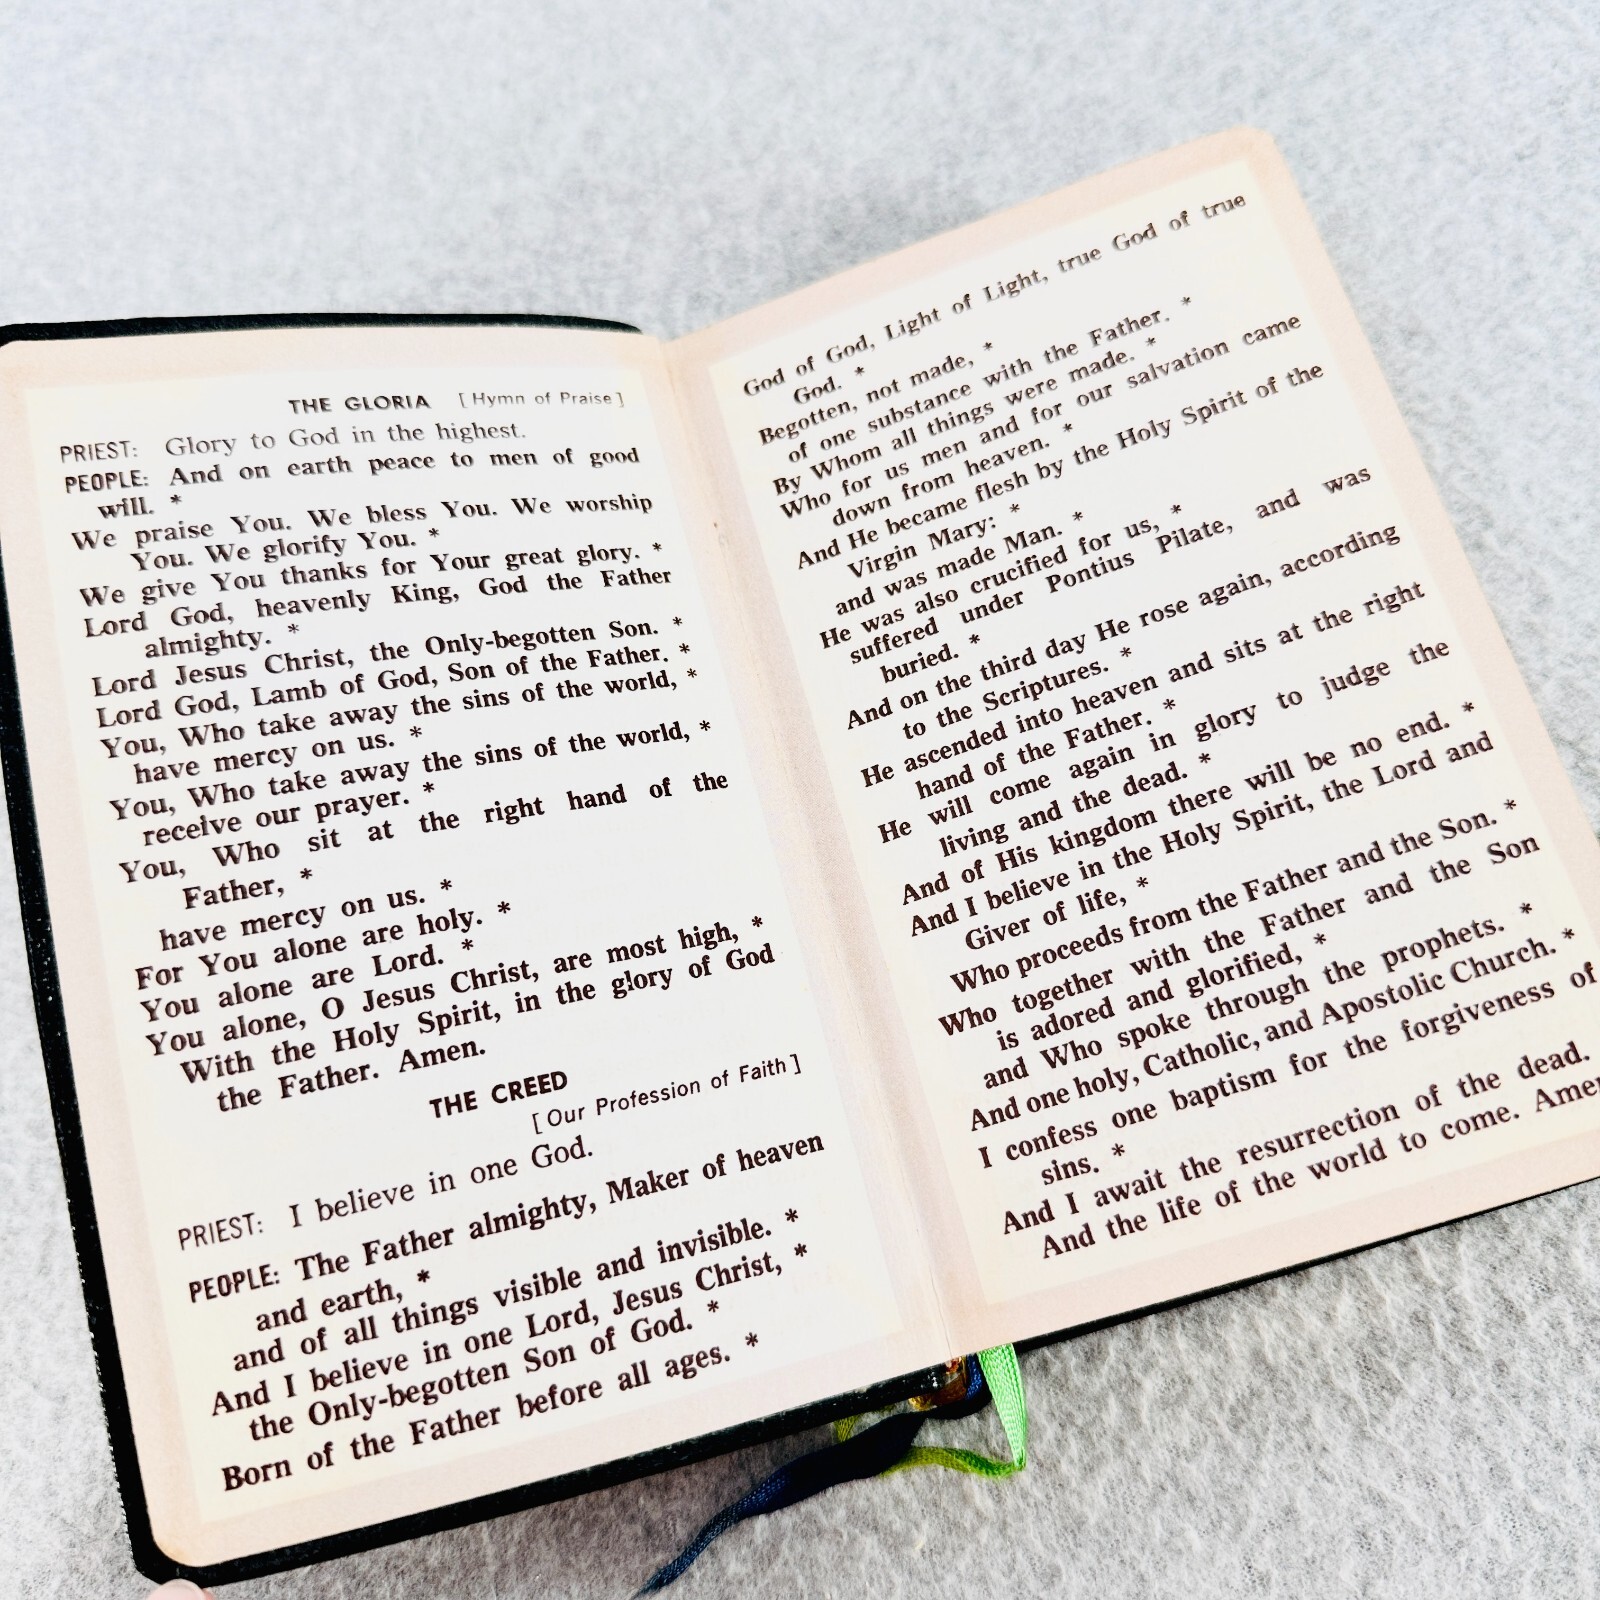 THE GLORIA [Hymn of Praise]
PRIEST: Glory to God in the highest.
PEOPLE: And on earth peace to men of good
will. *
We praise You. We bless You. We worship
You. We glorify You. *
We give You thanks for Your great glory. *
Lord God, heavenly King, God the Father
almighty. *
Lord Jesus Christ, the Only-begotten Son. *
Lord God, Lamb of God, Son of the Father. *
You, Who take away the sins of the world, *
have mercy on us. *
You, Who take away the sins of the world, *
receive our prayer. *
You, Who sit at the right hand of the
Father, *
have mercy on us. *
For You alone are holy. *
You alone are Lord. *
You alone, O Jesus Christ, are most high, *
With the Holy Spirit, in the glory of God
the Father. Amen.
THE CREED
[Our Profession of Faith]
PRIEST: I believe in one God.
PEOPLE: The Father almighty, Maker of heaven
and earth, *
and of all things visible and invisible. *
And I believe in one Lord, Jesus Christ, *
the Only-begotten Son of God. *
Born of the Father before all ages. *
God of God, Light of Light, true God of true
God. *
Begotten, not made, *
of one substance with the Father. *
By Whom all things were made. *
Who for us men and for our salvation came
down from heaven. *
And He became flesh by the Holy Spirit of the
Virgin Mary: *
and was made Man. *
He was also crucified for us, *
suffered under Pontius Pilate, and was
buried. *
And on the third day He rose again, according
to the Scriptures. *
He ascended into heaven and sits at the right
hand of the Father. *
He will come again in glory to judge the
living and the dead. *
And of His kingdom there will be no end. *
And I believe in the Holy Spirit, the Lord and
Giver of life, *
Who proceeds from the Father and the Son. *
Who together with the Father and the Son
is adored and glorified, *
and Who spoke through the prophets. *
And one holy, Catholic, and Apostolic Church. *
I confess one baptism for the forgiveness of
sins. *
And I await the resurrection of the dead.
And the life of the world to come. Amen